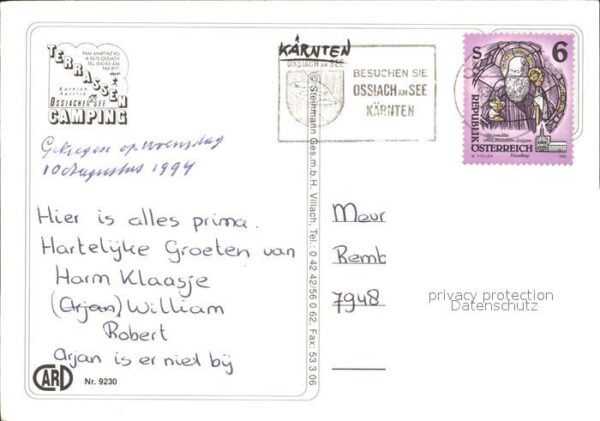 FAM. MARTINZ KG
A-9570 OSSIACH
TERRASSEN
Kärnten
Austria
OSSIACHER SEE
CAMPING
KÄRNTEN
OSSIACH AM SEE
BESUCHEN SIE
OSSIACH AM SEE
KÄRNTEN
S 6
REPUBLIK
ÖSTERREICH
Gekregen op woensdag
10 Augustus 1994
Hier is alles prima.
Hartelijke Groeten van
Harm Klaasje
(Arjan) William
Robert
Arjan is er niet bij
© Steinmann Ges.m.b.H. Villach, Tel.: 0 42 42/56 0 62, Fax: 53 3 06
Meur
Remb
7948
privacy protection
Datenschutz
CARD
Nr. 9230